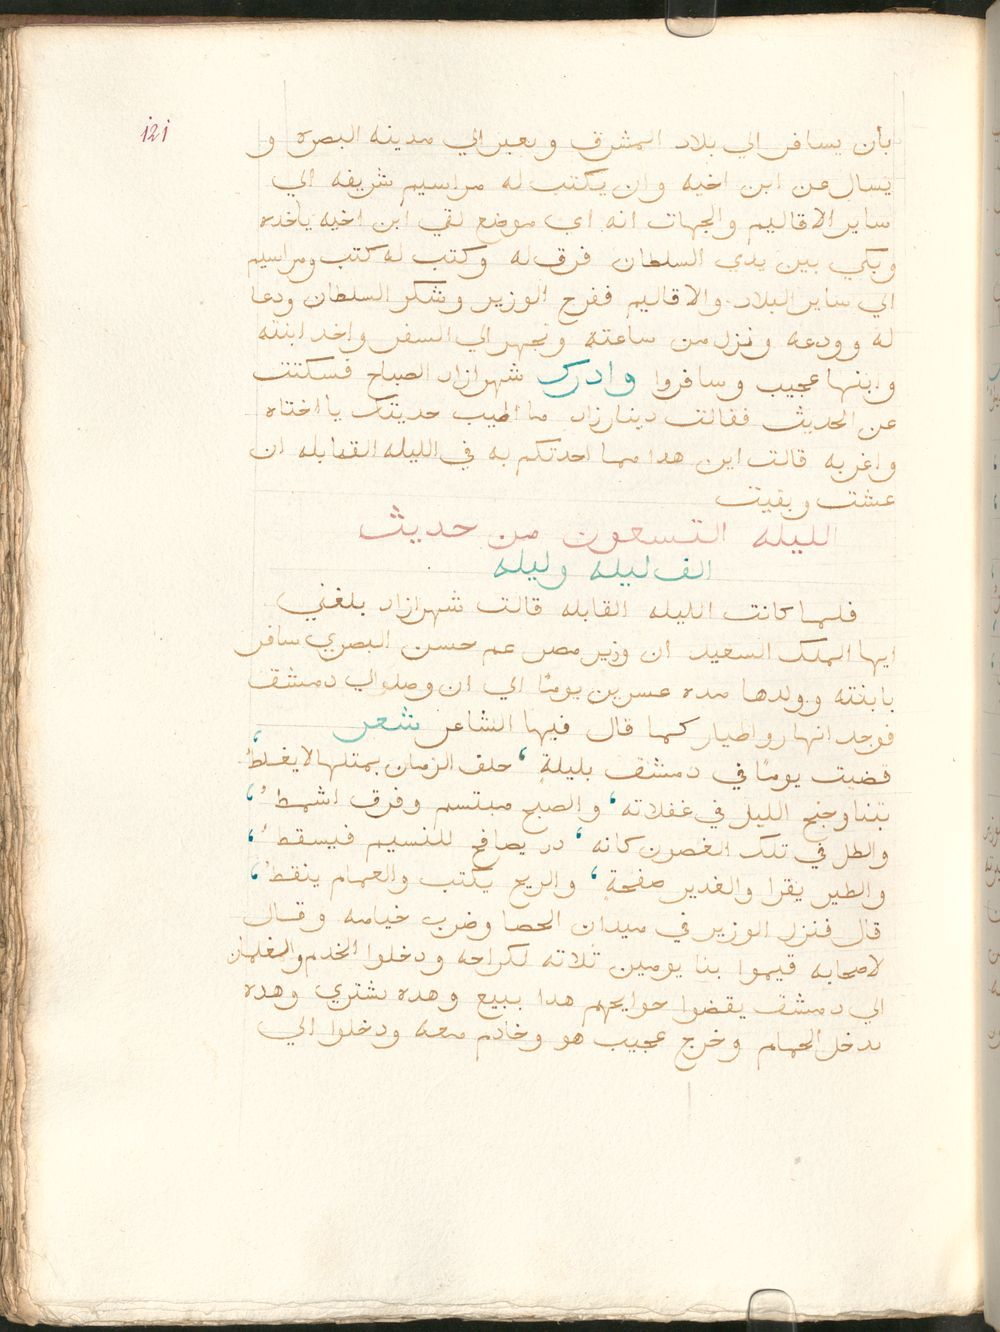 121
بان يسافر الي بلاد المشرق ويعبر الي مدينه البصره و
يسال عن ابن اخيه وان يكتب له مراسيم شريفه الي
ساير الاقاليم والجهات انه اي موضع لقي ابن اخيه ياخده
وبكي بين يدي السلطان فرق له وكتب له كتب ومراسيم
الي ساير البلاد والاقاليم ففرح الوزير وشكر السلطان ودعا
له وودعه ونزل من ساعته وتجهز الي السفر واخد ابنته
وابنها عجيب وسافروا وادرك شهرازاد الصباح فسكتت
عن الحديث فقالت دينارزاد ما اطيب حديتك يا اختاه
واغربه قالت اين هدا مما احدتكم به في الليله القابله ان
عشت وبقيت
الليله التسعون من حديث
الف ليله وليله
فلما كانت الليله القابله قالت شهرازاد بلغني
ايها الملك السعيد ان وزير مصر عم حسن البصري سافر
بابنته وولدها مده عسرين يومًا الي ان وصلوا الي دمشق
فوجد انهار واطيار كما قال فيها الشاعر شعر
قضيت يومًا في دمشق بليلةٍ ، حلف الزمان بمتلها لا يغلطُ ،
بتنا وجنح الليل في غفلاته ، والصبح مبتسم وفرق اشمطُ ،
والطل في تلك الغصون كانه ، در يصافح للنسيم فيسقطُ ،
والطير يقرا والغدير صفحةٍ ، والريح يكتب والغمام ينقطُ ،
قال فنزل الوزير في ميدان الحصا وضرب خيامه وقال
لاصحابه قيموا بنا يومين تلاته لكراحه ودخلوا الخدم والغلمان
الي دمشق يقضوا حوايجهم هدا يبيع وهده يشتري وهده
يدخل الحمام وخرج عجيب هو وخادم معه ودخلوا الي